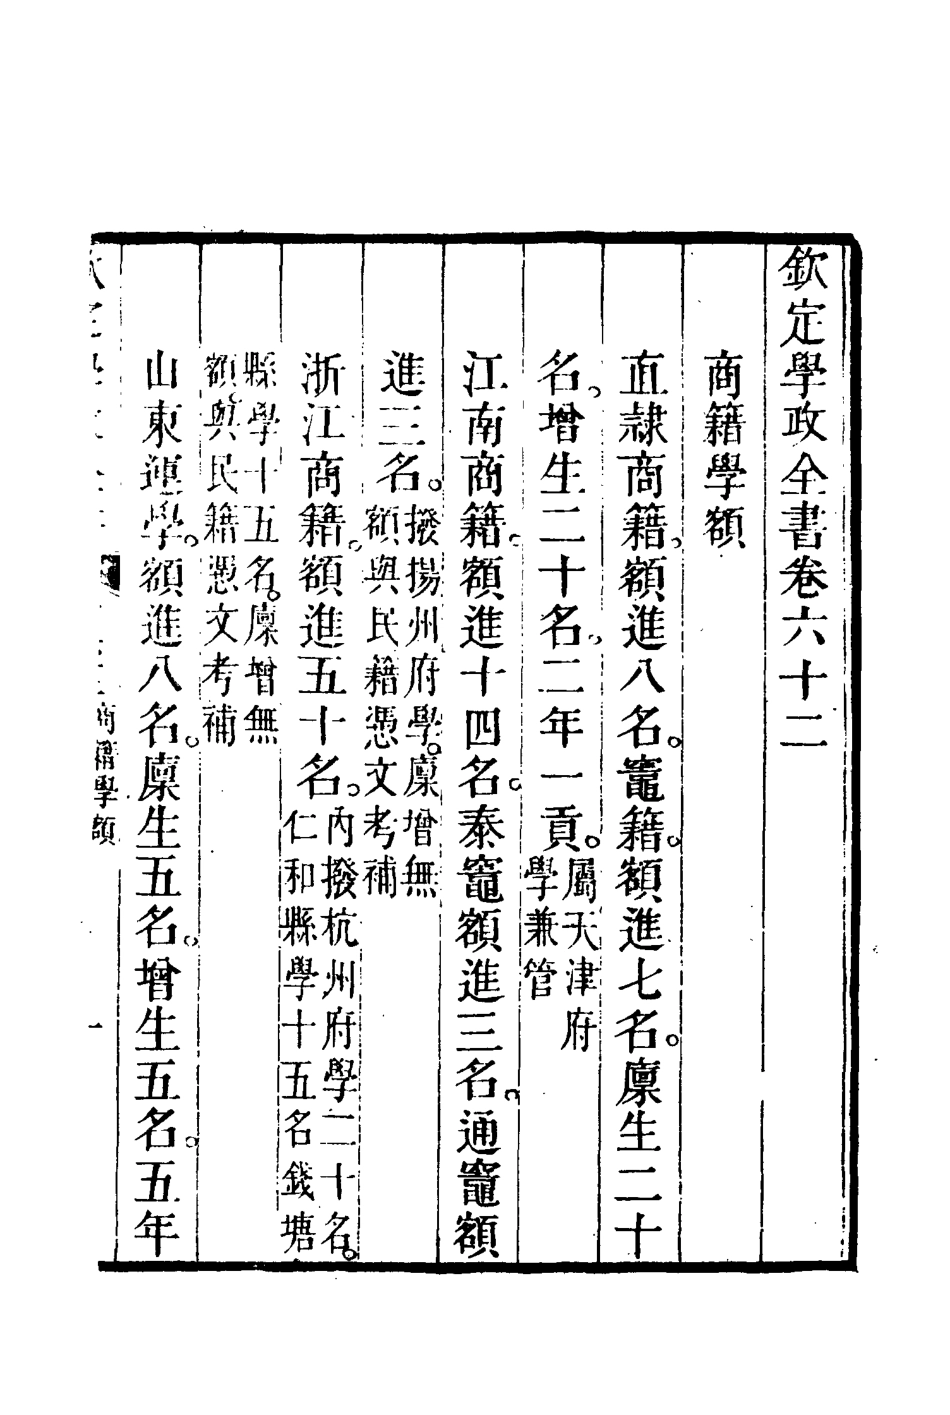 欽定學政全書卷六十二
商籍學額
直隸商籍。額進八名。竈籍。額進七名。廩生二十
名。增生二十名。二年一貢。屬天津府
學兼管
江南商籍。額進十四名。泰竈額進三名。通竈額
進三名。撥揚州府學。廩增無
額與民籍憑文考補
浙江商籍。額進五十名。內撥杭州府學二十名。
仁和縣學十五名錢塘
縣學十五名。廩增無
額與民籍憑文考補
山東運學。額進八名。廩生五名。增生五名。五年
商籍學額
一